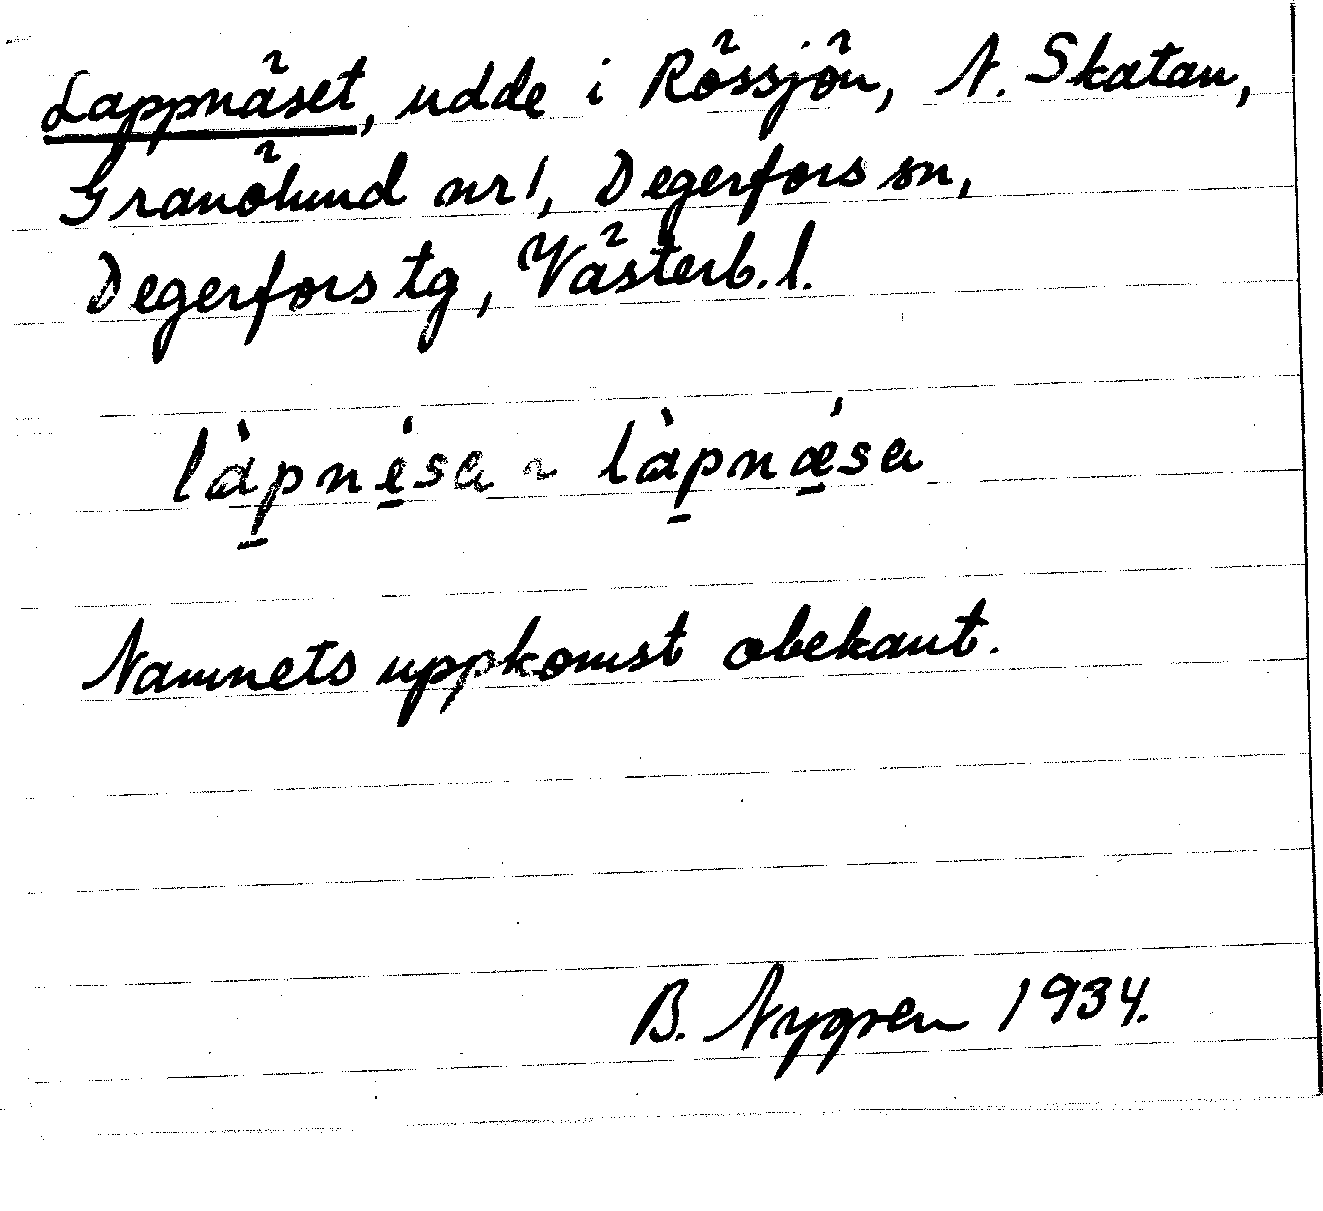 Lappnäset, udde i Rössjön, N. Skatan,
Granölund nr 1, Degerfors sn,
Degerfors tg, Västerb. l.
làpnésa ~ làpnǽsa
Namnets uppkomst obekant.
B. Nygren 1934.